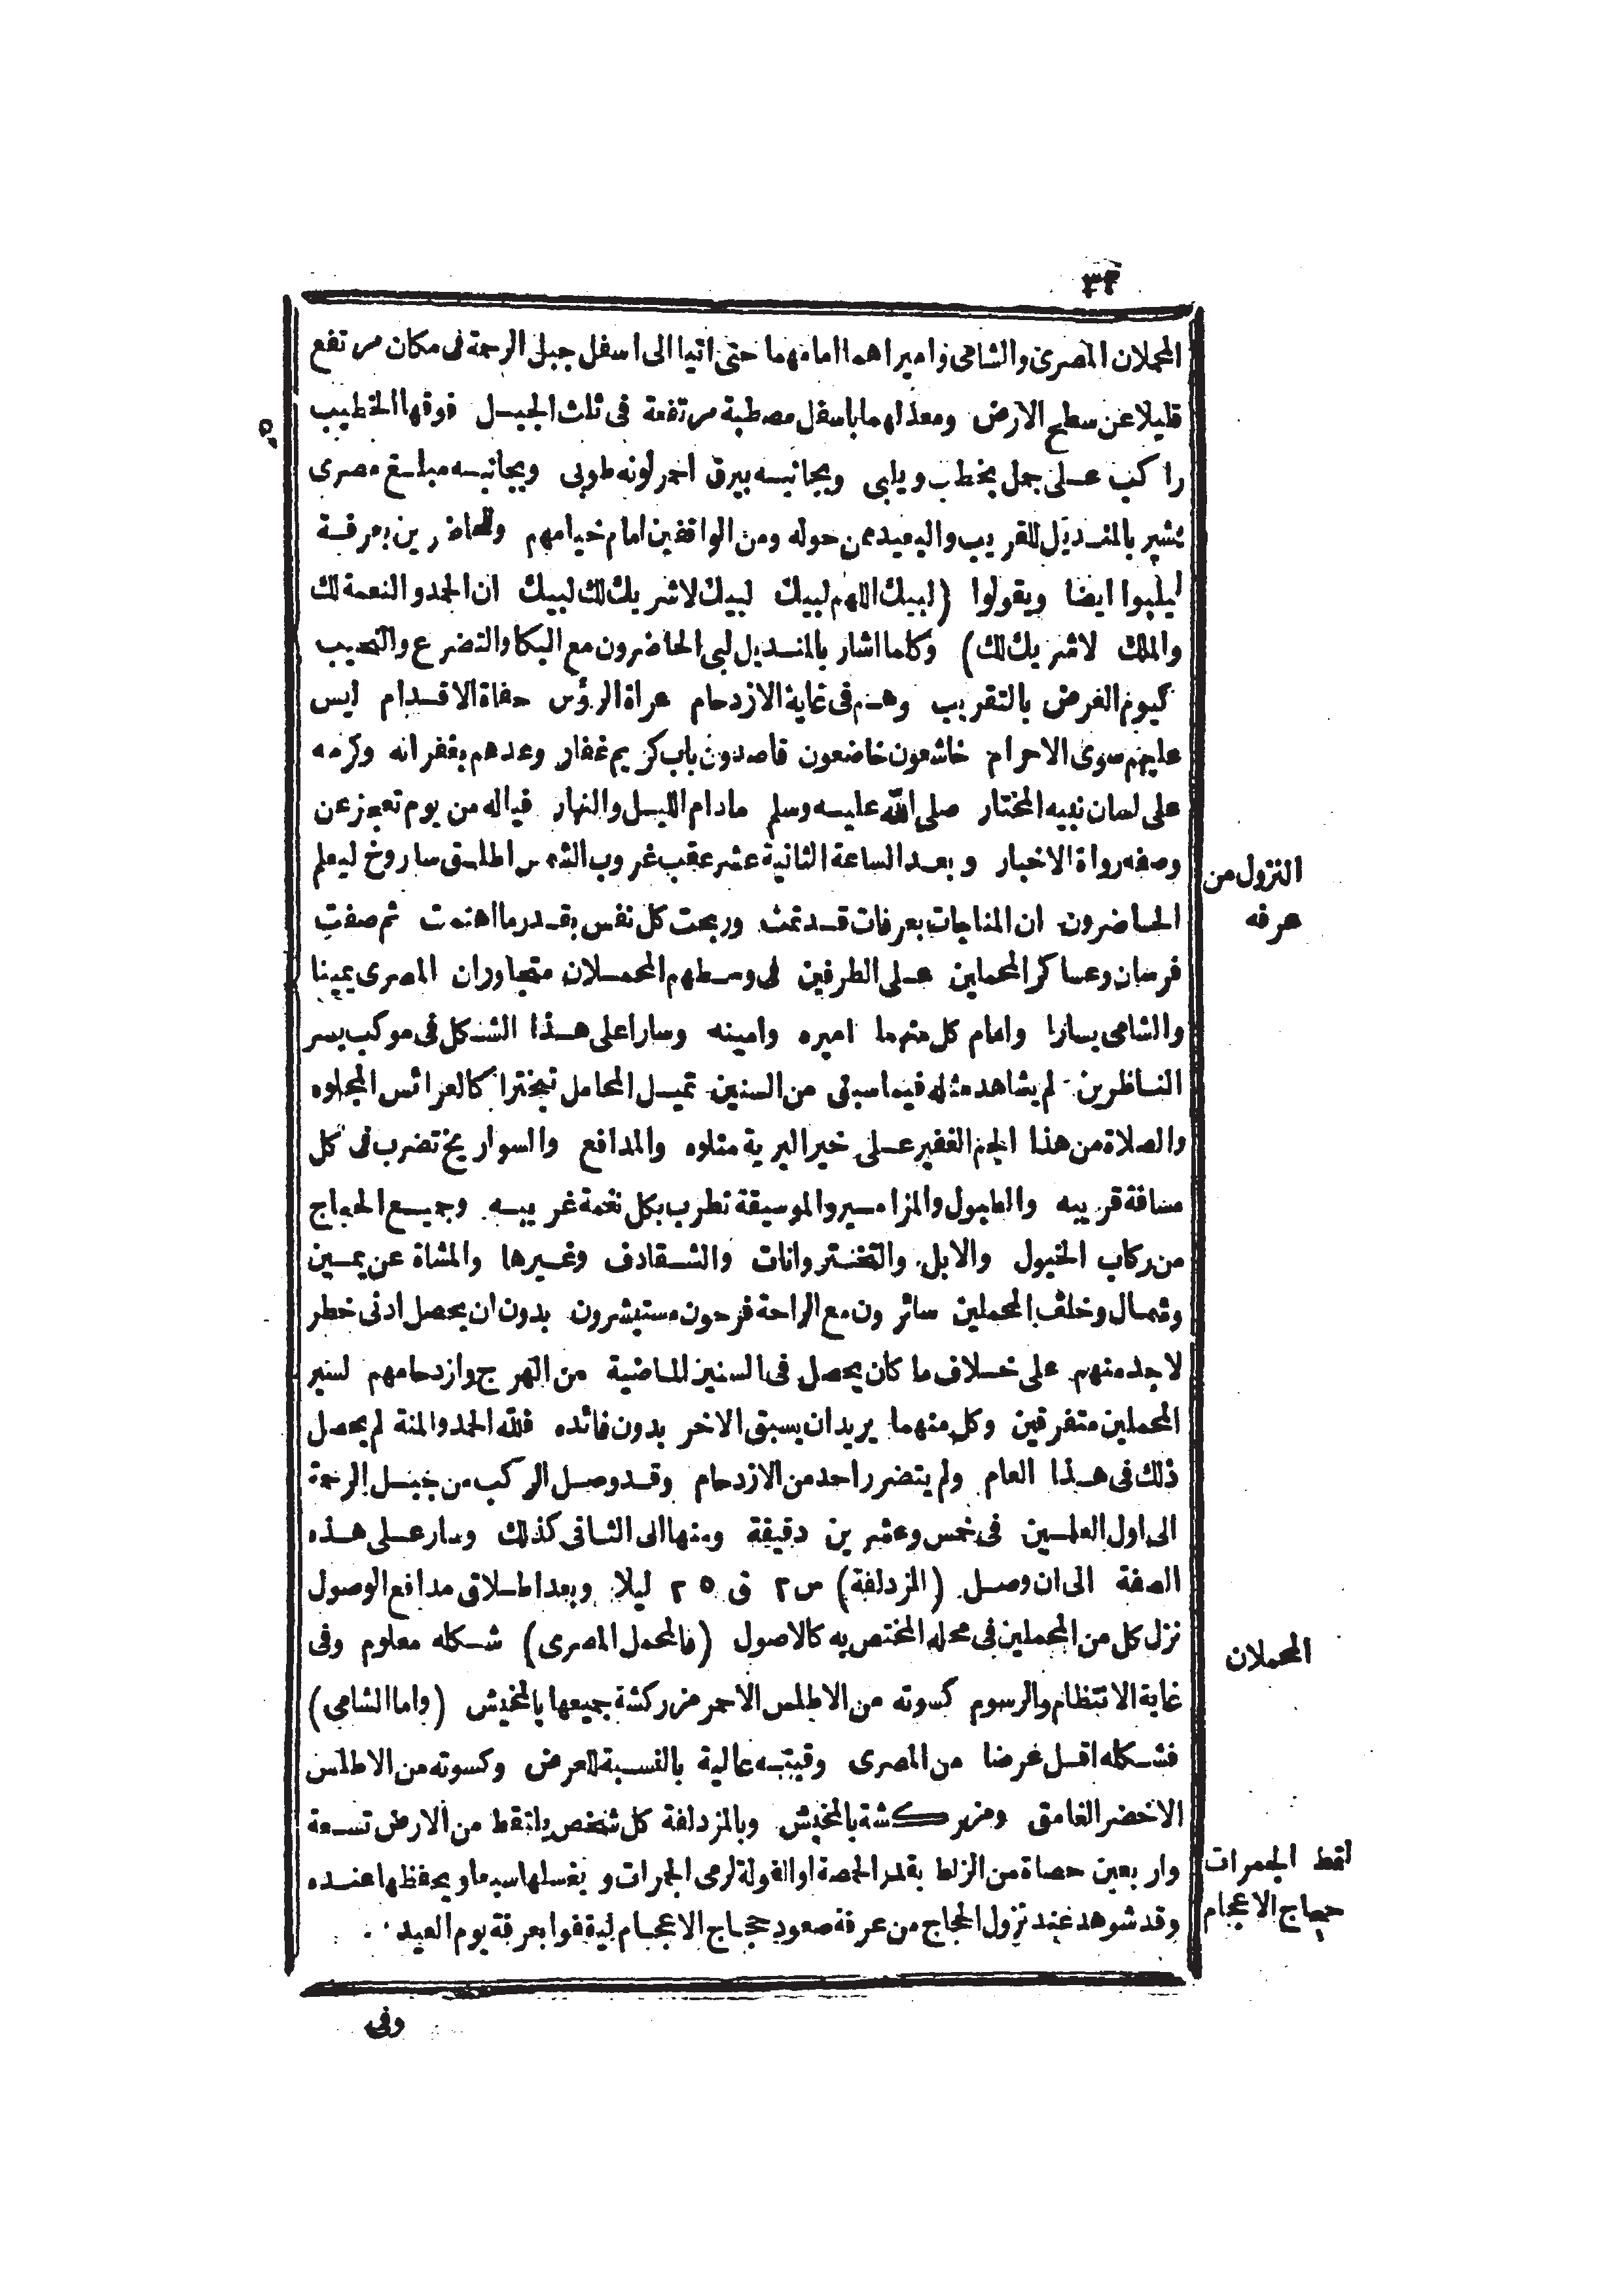 ٣٤
المحملان المصرى والشامى واميراهما امامهما حتى اتيا الى اسفل جبل الرحمة فى مكان مرتفع
قليلا عن سطح الارض ومعد لهما باسفل مصطبة مرتفعة فى ثلث الجبل فوقها الخطيب
راكب على جمل يخطب ويلبى وبجانبه بيرق احمر لونه طوبى وبجانبه مبلغ مصرى
يشير بالمنديل للقريب والبعيد ممن حوله ومن الواقفين امام خيامهم والحاضرين بعرفة
ليلبوا ايضا ويقولوا (لبيك اللهم لبيك لبيك لا شريك لك لبيك ان الحمد والنعمة لك
والملك لا شريك لك) وكلما اشار بالمنديل لبى الحاضرون مع البكا والتضرع والنحيب
كيوم العرض بالتقريب وهم فى غاية الازدحام عراة الرؤس حفاة الاقدام ليس
عليهم سوى الاحرام خاشعون خاضعون قاصدون باب كريم غفار وعدهم بغفرانه وكرمه
على لسان نبيه المختار صلى الله عليه وسلم مادام الليل والنهار فياله من يوم تعجز عن
وصفه رواة الاخبار وبعد الساعة الثانية عشر عقب غروب الشمس اطلق ساروخ ليعلم
النزول من
عرفه
الحاضرون ان المناجات بعرفات قد تمت وربحت كل نفس بقدر ما اهتمت ثم صفت
فرسان وعساكر المحملين على الطرفين فى وسطهم المحملان متجاوران المصرى يمينا
والشامى يسارا وامام كل منهما اميره وامينه وسارا على هذا الشكل فى موكب يسر
الناظرين لم يشاهد مثله فيما سبق من السنين تميل المحامل تبخترا كالعرائس المجلوه
والصلاة من هذا الجم الغفير على خير البرية متلوه والمدافع والسواريخ تضرب فى كل
مسافة قريبه والطبول والمزامير والموسيقة تطرب بكل نغمة غريبه وجميع الحجاج
من ركاب الخيول والابل والتختروانات والشقادف وغيرها والمشاة عن يمين
وشمال وخلف المحملين سائرون مع الراحة فرحون مستبشرون بدون ان يحصل ادنى خطر
لاحد منهم على خلاف ما كان يحصل فى السنين الماضية من الهرج وازدحامهم لسير
المحملين متفرقين وكل منهما يريد ان يسبق الاخر بدون فائده فلله الحمد والمنة لم يحصل
ذلك فى هذا العام ولم يتضرر احد من الازدحام وقد وصل الركب من جبل الرحمة
الى اول العلمين فى خمس وعشرين دقيقة ومنها الى الثانى كذلك وسار على هذه
الصفة الى ان وصل (المزدلفة) س ٢ ق ٢٥ ليلا وبعد اطلاق مدافع الوصول
نزل كل من المحملين فى محله المختص به كالاصول (فالمحمل المصرى) شكله معلوم وفى
المحملان
غاية الانتظام والرسوم كسوته من الاطلس الاحمر مزركشة جميعها بالمخيش (واما الشامى)
فشكله اقل عرضا من المصرى وقبته عالية بالنسبة للعرض وكسوته من الاطلس
الاخضر الغامق ومزركشة بالمخيش وبالمزدلفة كل شخص يلتقط من الارض تسعة
لقط الجمرات
واربعين حصاة من الزلط بقدر الحمصة او الفولة لرمى الجمرات ويغسلها سبعا ويحفظها عنده
حجاج الاعجام
وقد شوهد عند نزول الحجاج من عرفة صعود حجاج الاعجام ليقفوا بعرفة يوم العيد
وفى